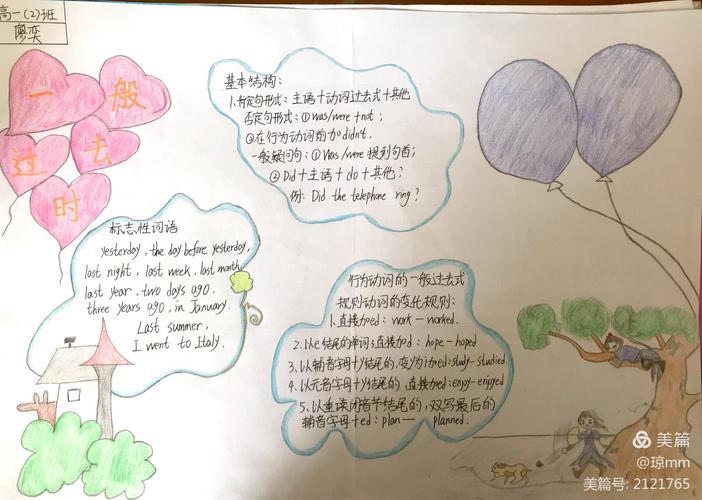 高一(2)班
廖奕
一般
过去
时
基本结构：
1.肯定句形式：主语+动词过去式+其他
否定句形式：①was/were+not；
②在行为动词前加didn't.
一般疑问句：①Was/were提到句首；
②Did+主语+do+其他？
例：Did the telephone ring？
标志性词语
yesterday, the day before yesterday,
last night, last week, last month
last year, two days ago.
three years ago, in January.
Last summer,
I went to Italy.
行为动词的一般过去式
规则动词的变化规则：
1.直接加ed：work—worked.
2.以e结尾的单词；直接加d：hope-hoped
3.以辅音字母+y结尾的，变y为i加ed：study-studied.
4.以元音字母+y结尾的，直接加ed：enjoy-enjoyed
5.以重读闭音节结尾的，双写最后的
辅音字母+ed：plan— planned.
美篇
@琼mm
美篇号: 2121765